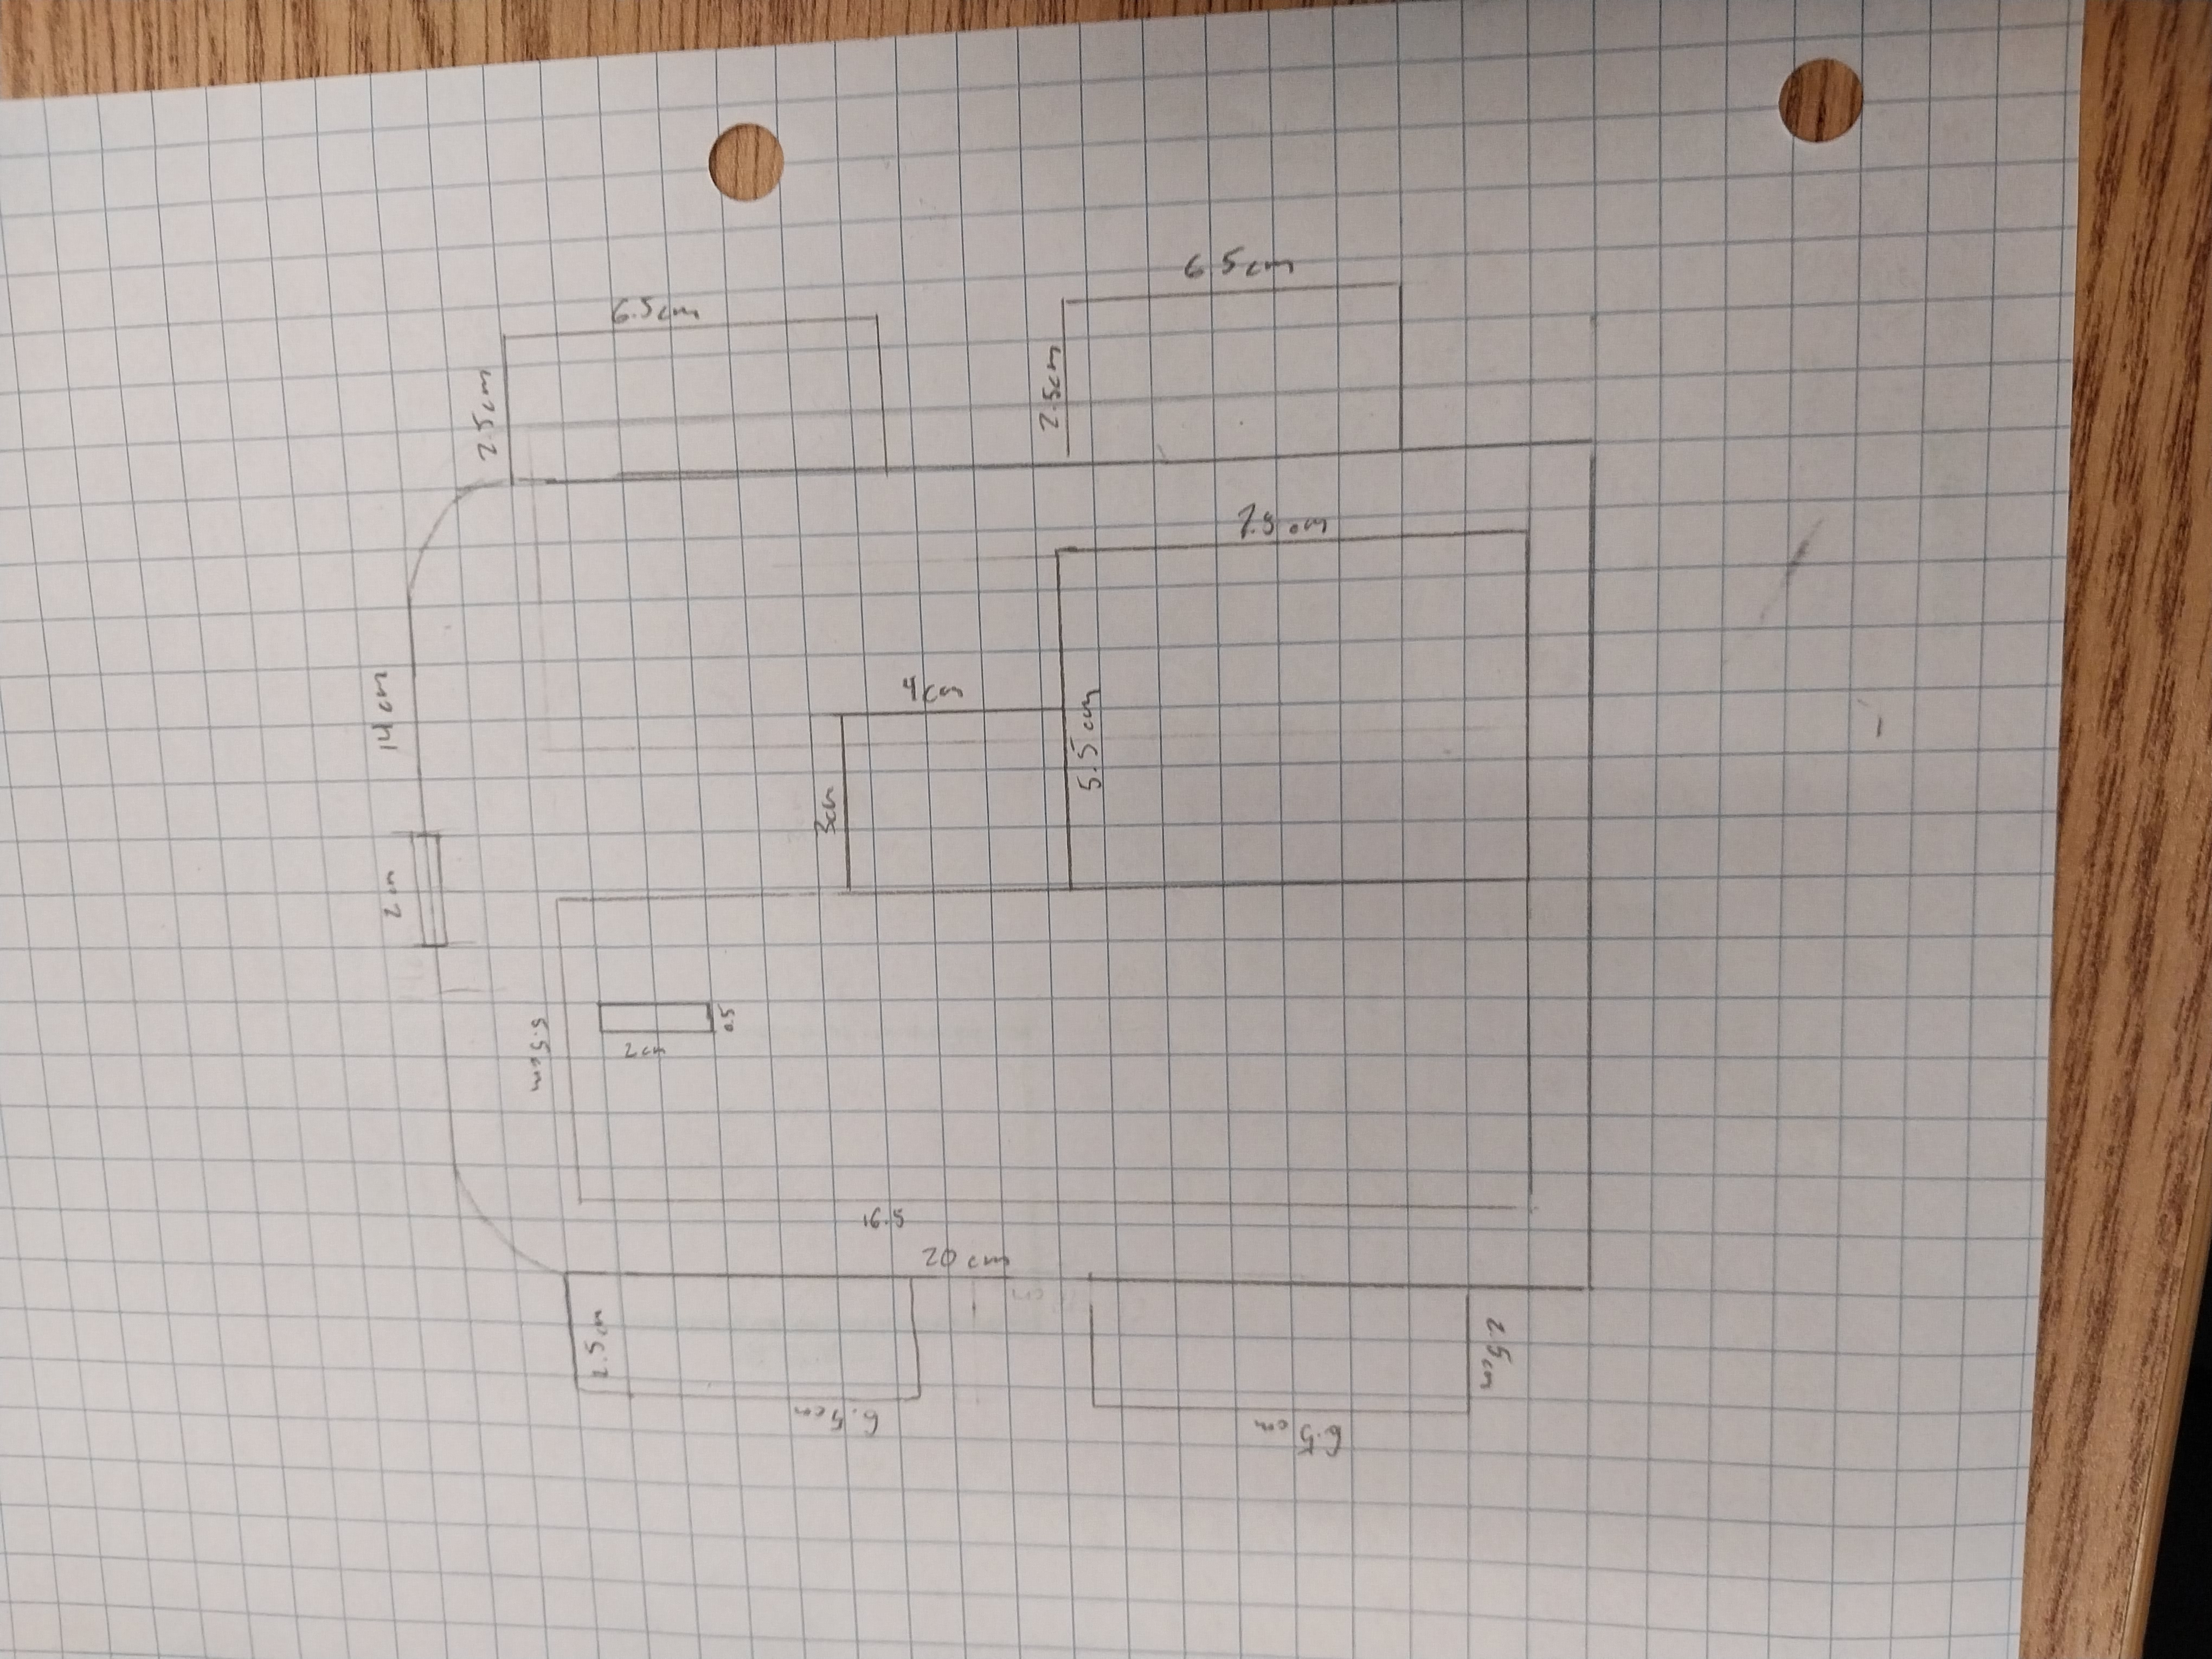 2cm
14cm
2.5cm
5.5cm
2.5cm
2cm
6.5cm
0.5
3cm
6.5cm
16.5
4cm
20cm
2.5cm
5.5cm
6.5cm
7.5cm
6.5cm
2.5cm